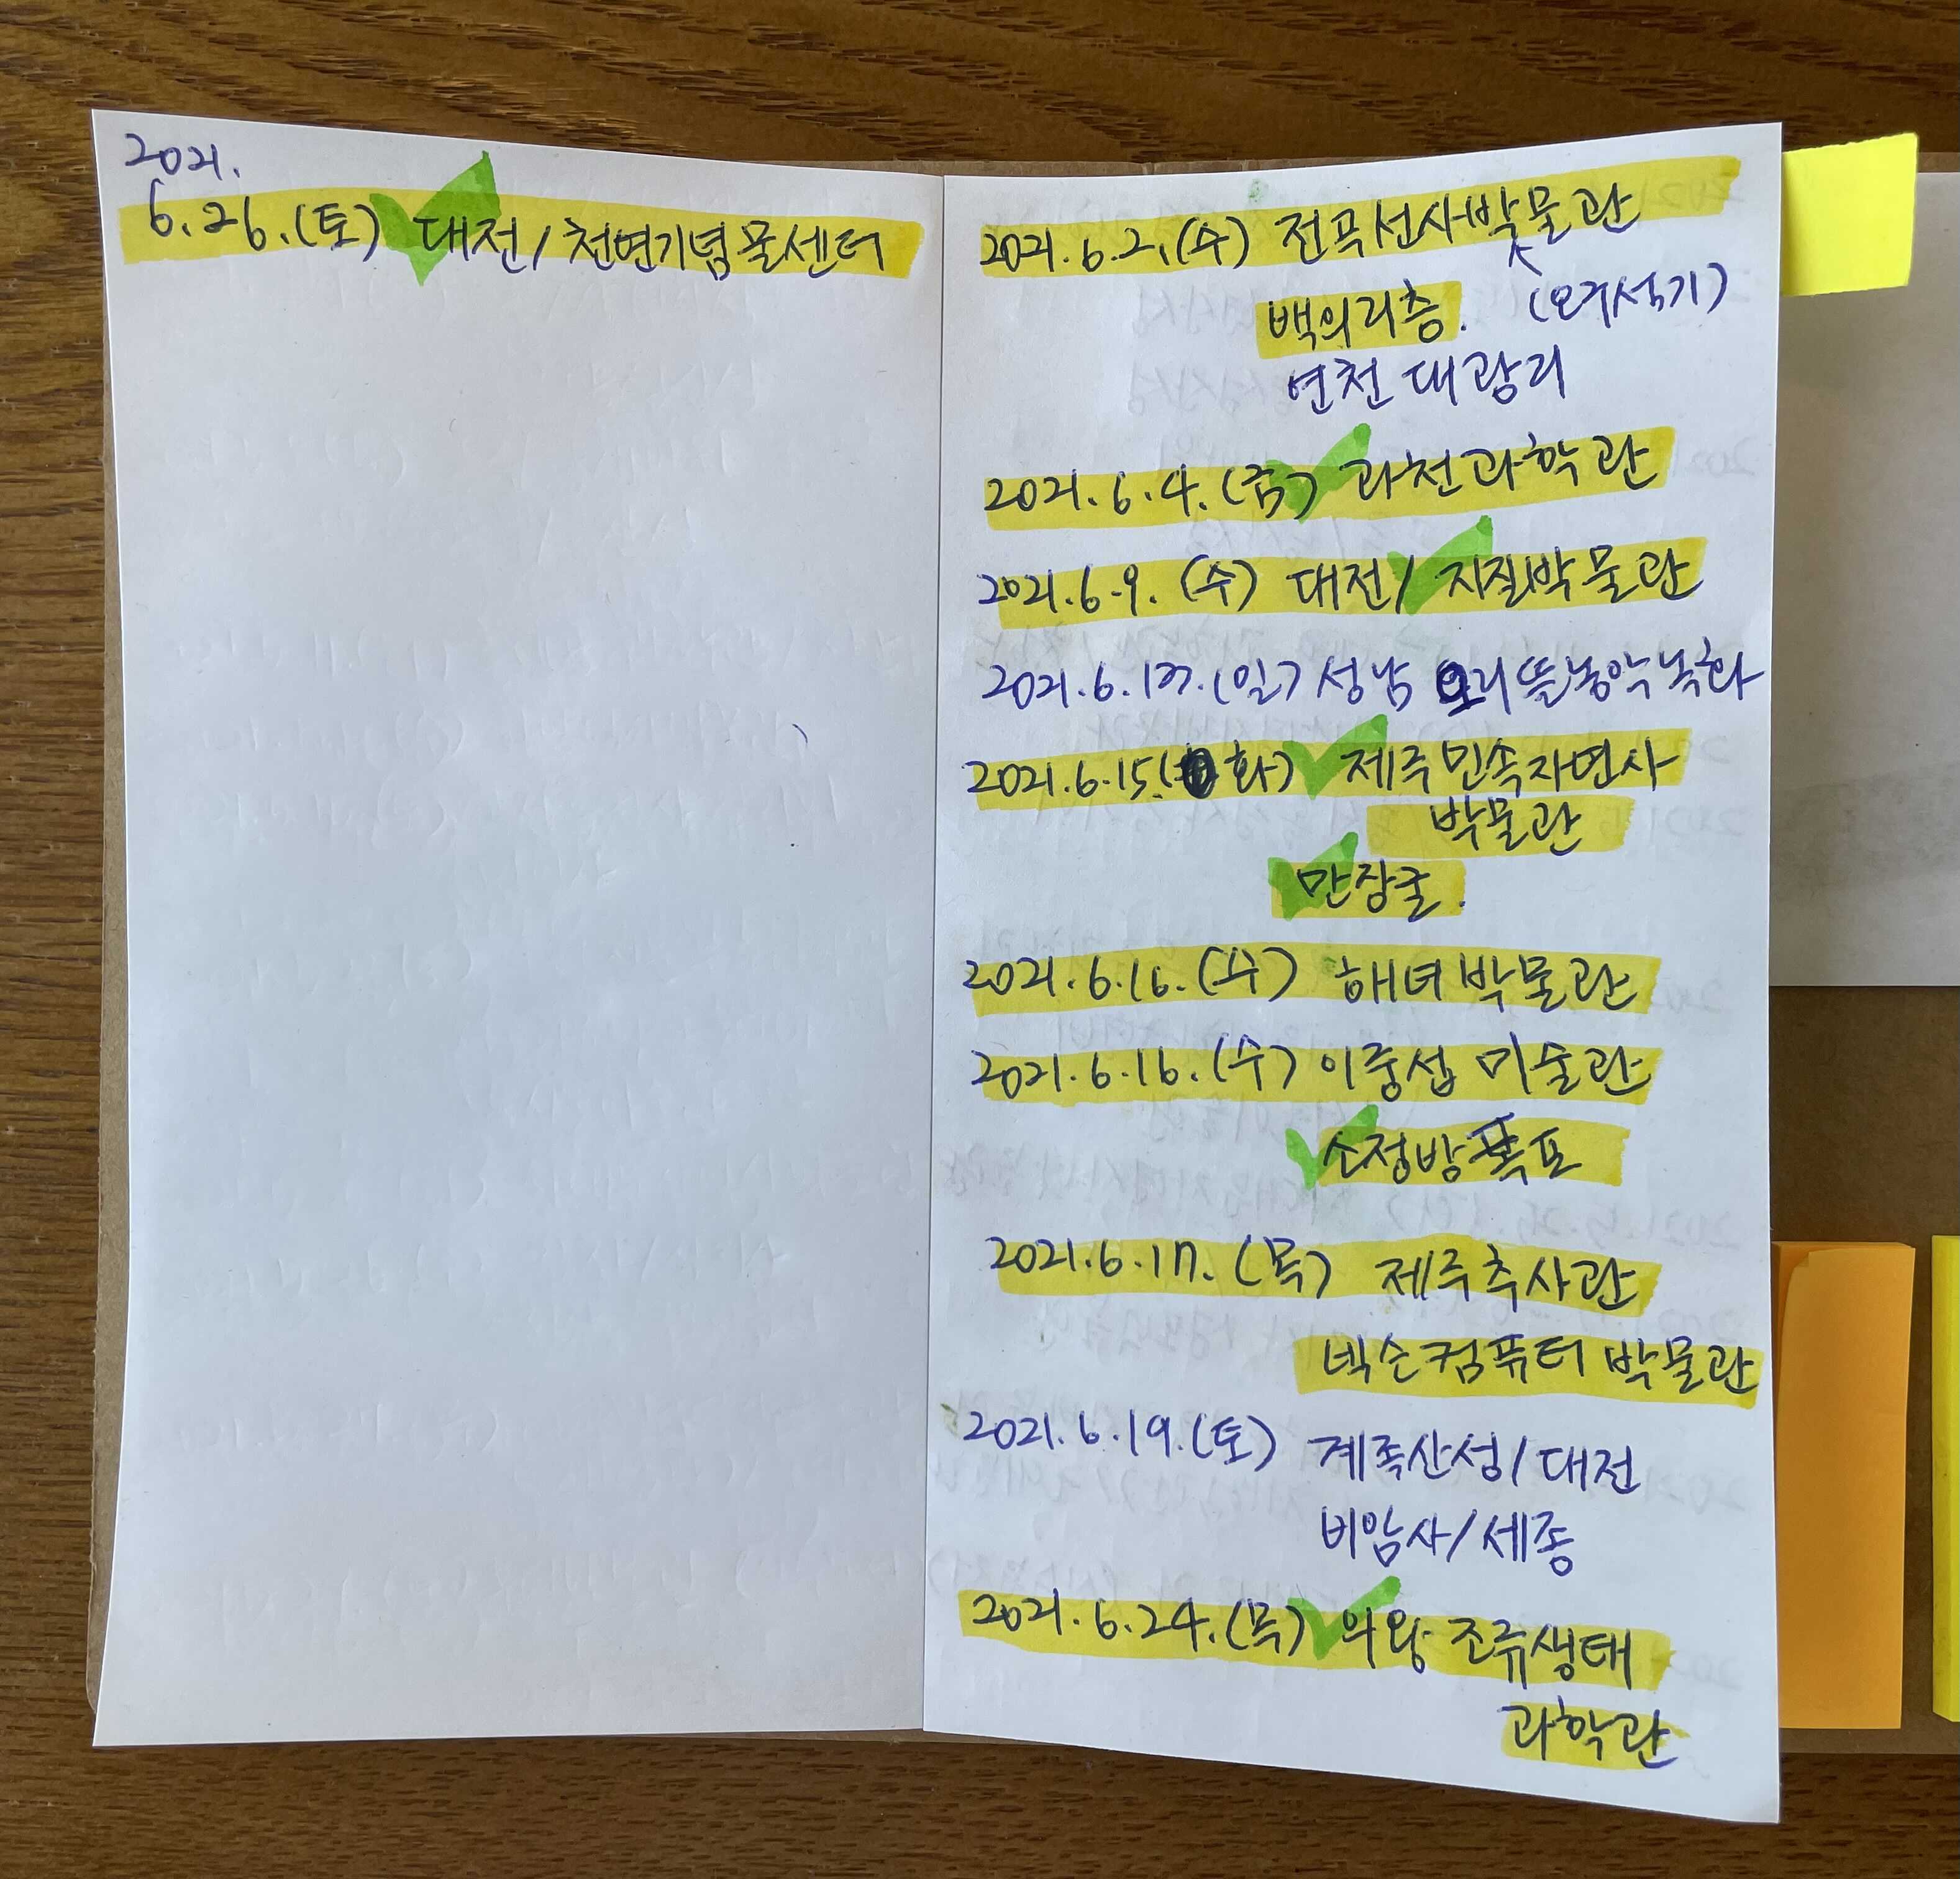 2021.
6.26.(토) 대전/천연기념물센터
2021.6.2.(수) 전곡선사박물관
백의리층. (요거석기)
연천 대광리
2021.6.4.(금) 과천과학관
2021.6.9.(수) 대전/지질박물관
2021.6.13.(일) 성남 오리뜰농악녹화
2021.6.15.(화) 제주민속자연사
박물관
만장굴.
2021.6.16.(수) 해녀박물관
2021.6.16.(수) 이중섭 미술관
소정방폭포
2021.6.17.(목) 제주추사관
넥슨컴퓨터 박물관
2021.6.19.(토) 계족산성/대전
비암사/세종
2021.6.24.(목) 의왕 조류생태
과학관